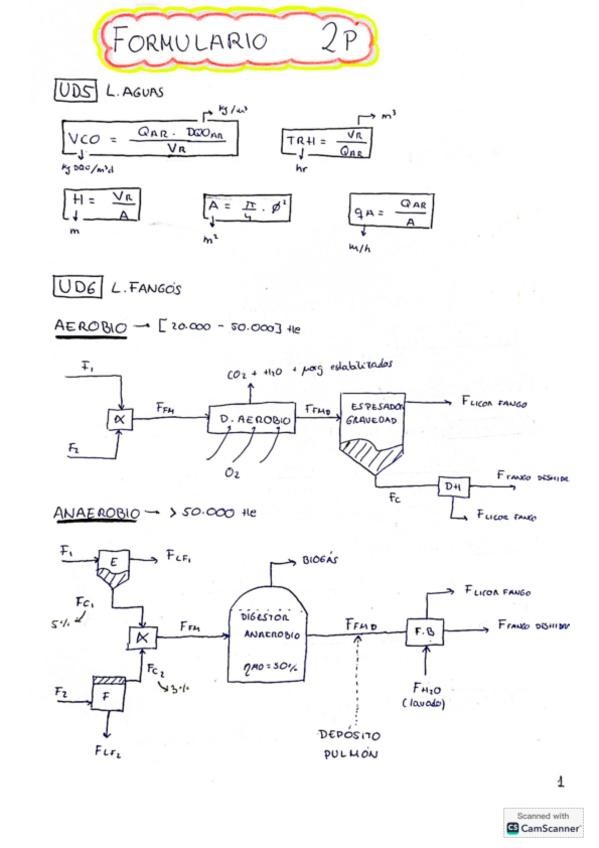 FORMULARIO 2P
UD5 L. AGUAS
VCO = QAR · DQOAR / VR
kg/m³
kg DQO/m³d
TRH = VR / QAR
m³
hr
H = VR / A
m
A = π/4 · φ²
m²
qA = QAR / A
m/h
UD6 L. FANGOS
AEROBIO → [20.000 - 50.000] He
F1
F2
α
FFM
CO2 + H2O + morg estabilizados
D. AEROBIO
O2
FFMD
ESPESADOR
GRAVEDAD
F LICOR FANGO
FC
DH
F FANGO DESHIDR
F LICOR FANGO
ANAEROBIO → > 50.000 He
F1
E
FLF1
FC1
5%
α
FFM
F2
F
FC2
3%
FLF2
BIOGÁS
DIGESTOR
ANAEROBIO
ηMO = 50%
FFMD
DEPÓSITO
PULMÓN
F.B
F LICOR FANGO
F FANGO DESHIDR
FH2O
(lavado)
1
Scanned with
CS CamScanner